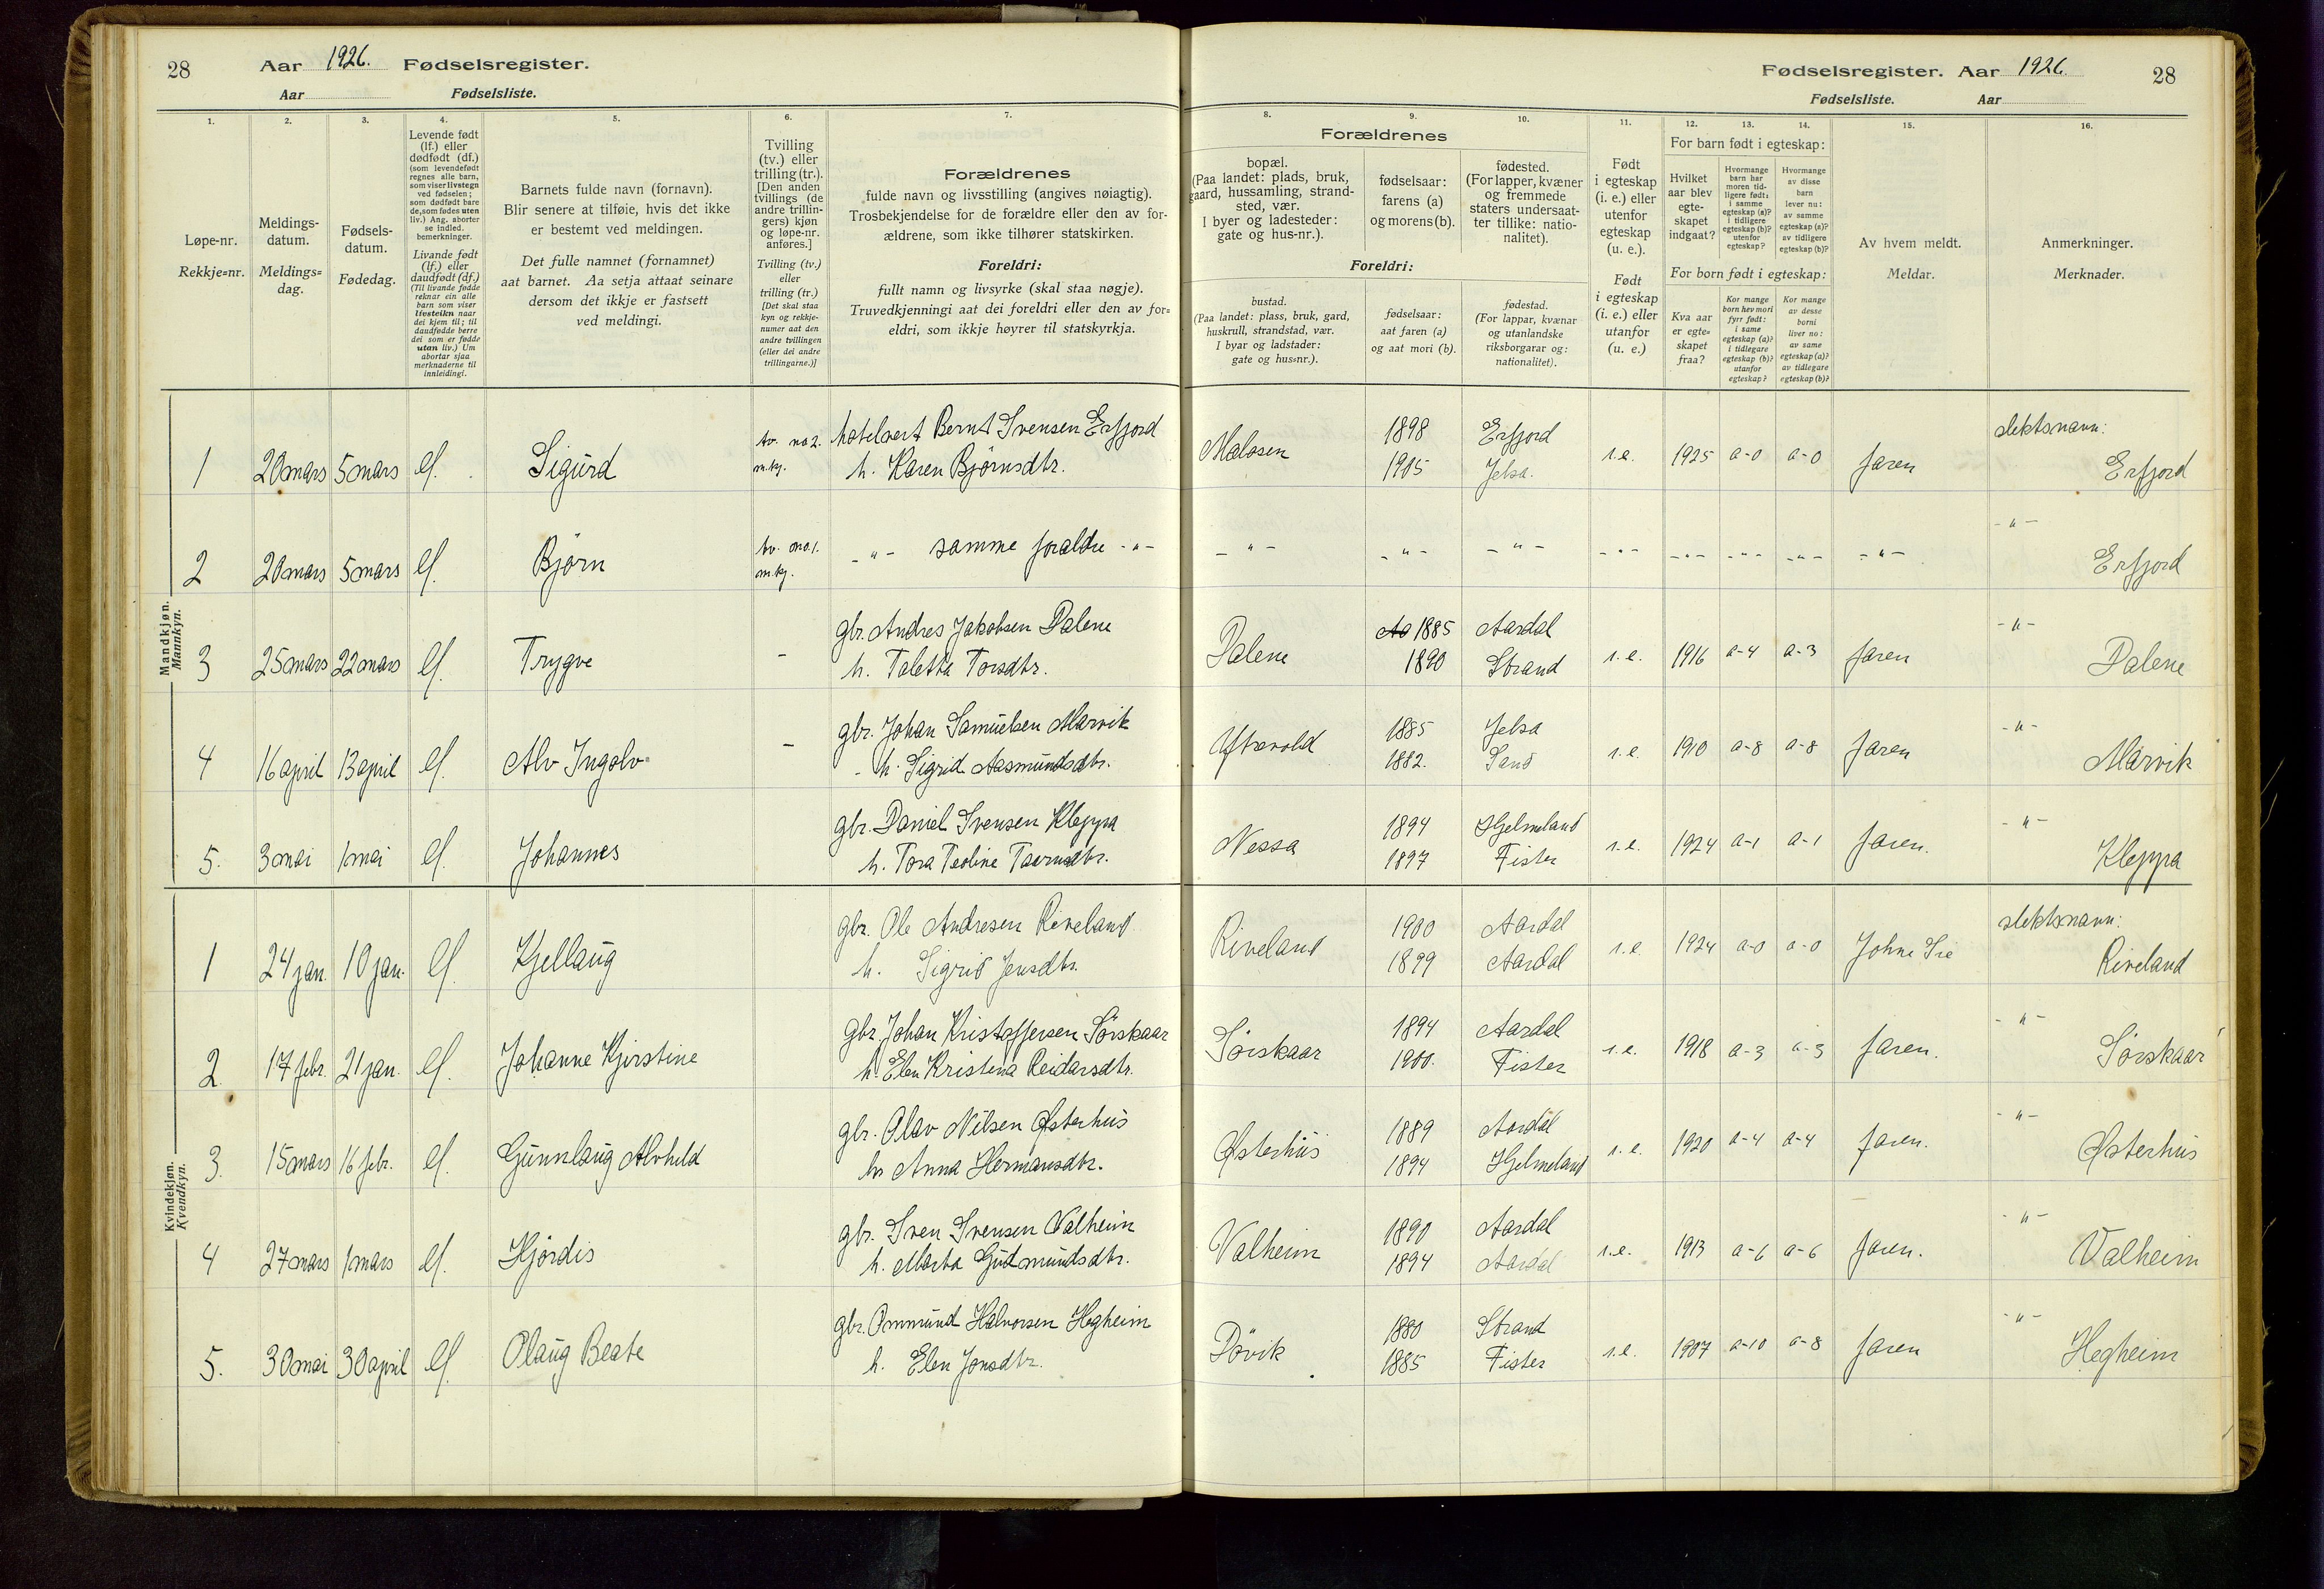 28 Aar 1926. Fødselsregister.
Aar Fødselsliste.
Fødselsregister. Aar 1926. 28
Fødselsliste. Aar
1. 2. 3. 4. 5. 6. 7. 8. 9. 10. 11. 12. 13. 14. 15. 16.
Løpe-nr.
Rekkje=nr.
Meldings-
datum.
Meldings=
dag.
Fødsels-
datum.
Fødedag.
Levende født
(lf.) eller
dødfødt (df.)
(som levendefødt
regnes alle barn,
som viser livstegn
ved fødselen;
som dødfødt bare
de, som fødes uten
liv.) Ang. aborter
se indled.
bemerkninger.
Livande født
(lf.) eller
daudfødt (df.)
(Til livande fødde
reknar ein alle
barn som viser
livsteikn naar
dei kjem til; til
daudfødde berre
dei som er fødde
utan liv.) Um
abortar sjaa
merknaderne til
innleidingi.
Barnets fulde navn (fornavn).
Blir senere at tilføie, hvis det ikke
er bestemt ved meldingen.
Det fulle namnet (fornamnet)
aat barnet. Aa setja attaat seinare
dersom det ikkje er fastsett
ved meldingi.
Tvilling
(tv.) eller
trilling (tr.).
[Den anden
tvillings (de
andre trillin-
gers) kjøn
og løpe-nr.
anføres.]
Tvilling (tv.)
eller
trilling (tr.)
[Det skal staa
kyn og rekkje-
numer aat den
andre tvillingen
(eller dei andre
trillingarne.)]
Forældrenes
fulde navn og livsstilling (angives nøiagtig).
Trosbekjendelse for de forældre eller den av for-
ældrene, som ikke tilhører statskirken.
Foreldri:
fullt namn og livsyrke (skal staa nøgje).
Truvedkjenningi aat dei foreldri eller den av for=
eldri, som ikkje høyrer til statskyrkja.
Forældrenes
bopæl.
(Paa landet: plads, bruk,
gaard, hussamling, strand-
sted, vær.
I byer og ladesteder:
gate og hus-nr.).
fødselsaar:
farens (a)
og morens (b).
fødested.
(For lapper, kvæner
og fremmede
staters undersaat-
ter tillike: natio-
nalitet).
Foreldri:
bustad.
(Paa landet: plass, bruk, gard,
huskrull, strandstad, vær.
I byar og ladstader:
gate og hus=nr.).
fødselsaar:
aat faren (a)
og aat mori (b).
fødestad.
(For lappar, kvænar
og utanlandske
riksborgarar og:
nationalitet).
Født
i egteskap
(i. e.) eller
utenfor
egteskap
(u. e.).
Født
i egteskap
(i. e.) eller
utanfor
(u. e.)
For barn født i egteskap:
Hvilket
aar blev
egte-
skapet
indgaat?
Hvormange
barn har
moren tid-
ligere født:
i samme
egteskap (a)?
i tidligere
egteskap (b)?
utenfor
egteskap?
Hvormange
av disse
barn
lever nu:
av samme
egteskap (a)?
av tidligere
egteskap (b)?
For born født i egteskap:
Kva aar
er egte=
skapet
fraa?
Kor mange
born hev mori
fyrr født:
i same
egteskap (a)?
i tidlegare
egteskap (b)?
utanfor
egteskap?
Kor mange
av desse
borni
liver no:
av same
egteskap (a)?
av tidlegare
egteskap (b)?
Av hvem meldt.
Meldar.
Anmerkninger.
Merknader.
Mandkjøn.
Mannkyn.
1 20 mars 5 mars lf. Sigurd tv. no 2. m.kj. hotelvert Bernt Svensen Erfjord
h. Karen Bjørnsdtr.
Malosen 1898 1905 Erfjord Jelsa. i.e. 1925 a-0 a-0 faren slektsnavn: Erfjord
2 20 mars 5 mars lf. Bjørn tv. no.1. m.kj. -"- samme foraldre -"- -"- -"- -"- -"- -"- -"- -"- -"- -"- Erfjord
3 25 mars 22 mars lf. Trygve - gbr. Andres Jakobsen Dalene
h. Taletta Torsdtr.
Dalene 1885 1890 Aardal Strand i.e. 1916 a-4 a-3 faren -"- Dalene
4 16 april 13 april lf. Alv Ingolv - gbr. Johan Samuelsen Marvik
h. Sigrid Aasmundsdtr.
1885 1882. Jelsa Sand i.e. 1910 a-8 a-8 faren -"- Marvik
5. 3 mai 1 mai lf. Johannes gbr. Daniel Svensen Kleppa
h. Tora Teoline
Nessa 1894 1897 Hjelmeland Fister i.e. 1924 a-1 a-1 faren. -"- Kleppa
Kvindekjøn.
Kvendkyn.
1 24 jan. 10 jan. lf. Kjellaug gbr. Ole Andresen Riveland
h. Sigrid Jensdtr.
Riveland 1900 1899 Aardal Aardal i.e. 1924 a-0 a-0 Johne Sie slektsnavn: Riveland
2 17 febr. 21 jan. lf. Johanne Kjirstine gbr. Johan Kristoffersen Sørskaar
h. Elen Kristina Reidarsdtr.
Sørskaar 1894 1900. Aardal Fister i.e. 1918 a-3 a-3 faren. -"- Sørskaar
3. 15 mars 16 febr. lf. Gunnlaug Alvhild gbr. Olav Nilsen Østerhus
h. Anna Hermansdtr.
Østerhus 1889 1894 Aardal Hjelmeland i.e. 1920 a-4 a-4 faren. -"- Østerhus
4 27 mars 1 mars lf. Hjørdis gbr. Sven Svensen Valheim
h. Marta Gudmundsdtr.
Valheim 1890 1894 Aardal Aardal i.e. 1913 a-6 a-6 faren. -"- Valheim
5. 30 mai 30 april lf. Olaug Beate gbr. Ommund Halvorsen Hegheim
h. Elen Jonsdtr.
Døvik 1880 1885 Strand Fister i.e. 1907 a-10 a-8 faren -"- Hegheim